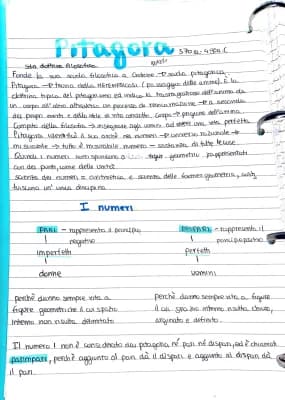 Pitagora 570 a.C - 495 a.C
sta dottrina filosofica
Fonda la sua scuola filosofica a Crotone → scuola pitagorica.
Pitagora → teoria della METEMPSICOSI (passaggio delle anime). È la
dottrina tipica del pitagorismo ed indica la trasmigrazione dell'anima da
un corpo all'altro attraverso un processo di reincarnazione → a seconda
dei propri meriti e dello stile di vita condotto. Corpo → prigione dell'anima.
Compito della filosofia → insegnare agli uomini ad una vita perfetta.
Pitagora identifica il suo archè nei numeri → universo razionale →
misurabile → tutto è misurabile numero → sostanza di tutte le cose.
Quindi i numeri corrispondono a figure geometriche rappresentati
con dei punti, come delle unità.
scienza dei numeri è aritmetica e scienza delle forme geometria,
una disciplina.
I numeri
PARI → rappresenta il principio
negativo
imperfetti
donne
DISPARI → rappresenta il
principio positivo
perfetti
uomini
perché danno sempre vita a
figure geometriche il cui spazio
interno non risulta delimitato
perché danno sempre vita a figure
il cui spazio interno risulta chiuso,
arginato e definito.
Il numero 1 non è considerato da pitagora né pari né dispari, ed è chiamato
parimpari, perché aggiunto al pari dà il dispari e aggiunto al dispari dà
il pari.